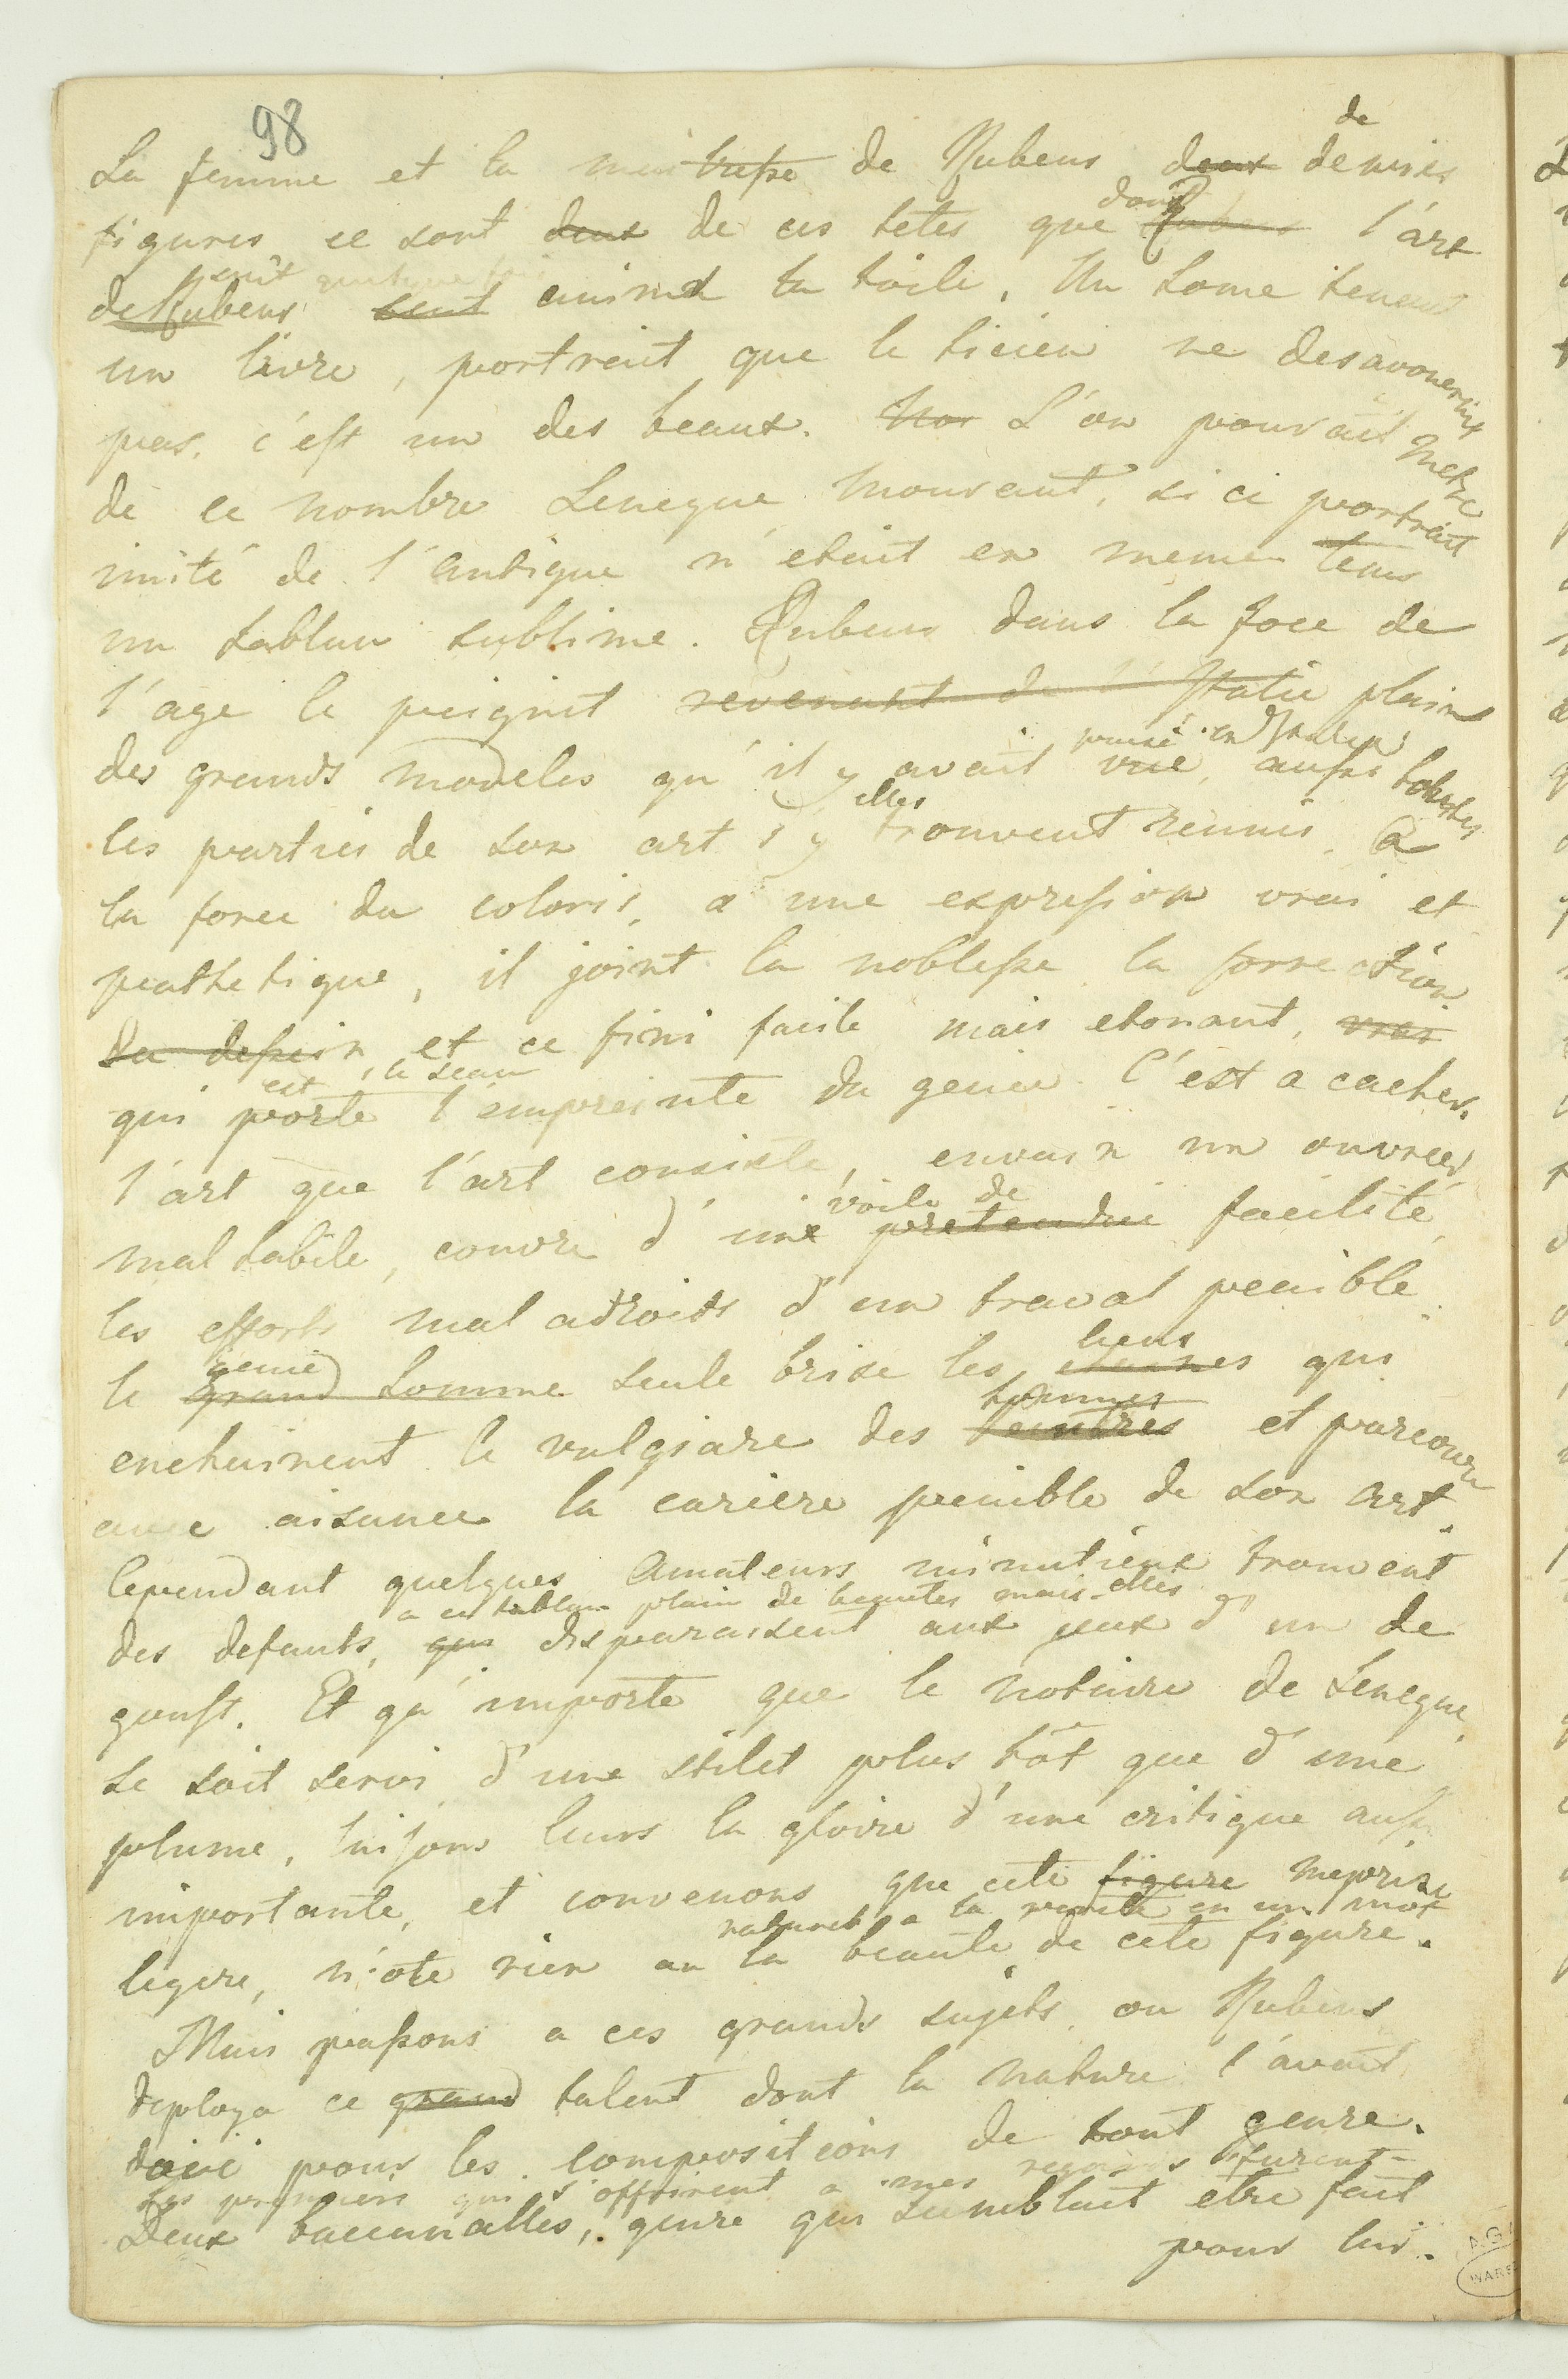 98
de
La femme et la maitresse de Rubens deux demies
figures ce sont deux de ces tetes que dont Rubens l'art
scut quelque fois
de Rubens seut animer la toile. Un home tenant
un livre, portrait que le ticien ne desavouerait
pas, c'est un des beaux. Nos L'on pourait metre
de ce nombre Seneque mourant, si ce portrait
imité de l'antique n'etait en meme tems
un tableau sublime. Rubens dans la force de
l'age le peignit revenant de l'Italie plain
puisé en Italie
des grands modeles qu'il y avait vue, aussi toutes
elles
les parties de son art s'y trouvent reunies. a
la force du coloris, a une expression vrai et
pathetique, il joint la noblesse la correction
du dessein et ce fini facile mais etonant, vrai
est le sceau
qui porte l'empreinte du genie. C'est a cacher
l'art que l'art consiste, envain un ouvrier
voile de
mal habile, couvre d'une pretendue facilité
les efforts mal adroits d'un traval penible
genie liens
le grand homme seule brise les chaines qui
hommes
enchainent le vulgiare des peintres et parcoure
avec aisance la cariere penible de son art.
Cependant quelques amateurs minutieux trouvent
a ce tableau plain de beautes mais elles
des defauts, qui disparaissent aux yeux d'un de
goust. Et qu'importe que le notaire de Seneque
se soit servi d'une stilet plus tôt que d'une
plume, laissons leurs la gloire d'une critique aussi
importante, et convenons que cete figure meprise
naturel a la verité en un mot
legere, n'ote rien au la beauté de cete figure.
Mais passons a ces grands sujets ou Rubens
deploya ce grand talent dont la nature l'avait
doué pour les compositions de tout genre.
Les premiers qui s'offrirent a mes regards furent
Deux baccanalles, genre qui semblait etre fait
pour lui.